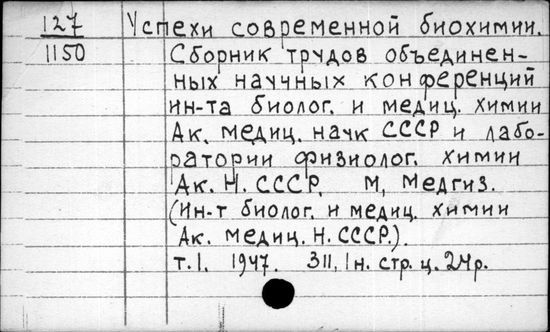 127 Успехи современной биохимии.
1150 Сборник трудов объединен-
ных научных конференций
ин-та биолог. и медиц. химии
Ак. медиц. наук СССР и лабо-
ратории физиолог. химии
Ак. Н. СССР. М, Медгиз.
(Ин-т биолог. и медиц. химии
Ак. медиц. Н. СССР.).
т.1. 1947. 311, 1н. стр. ц. 24р.